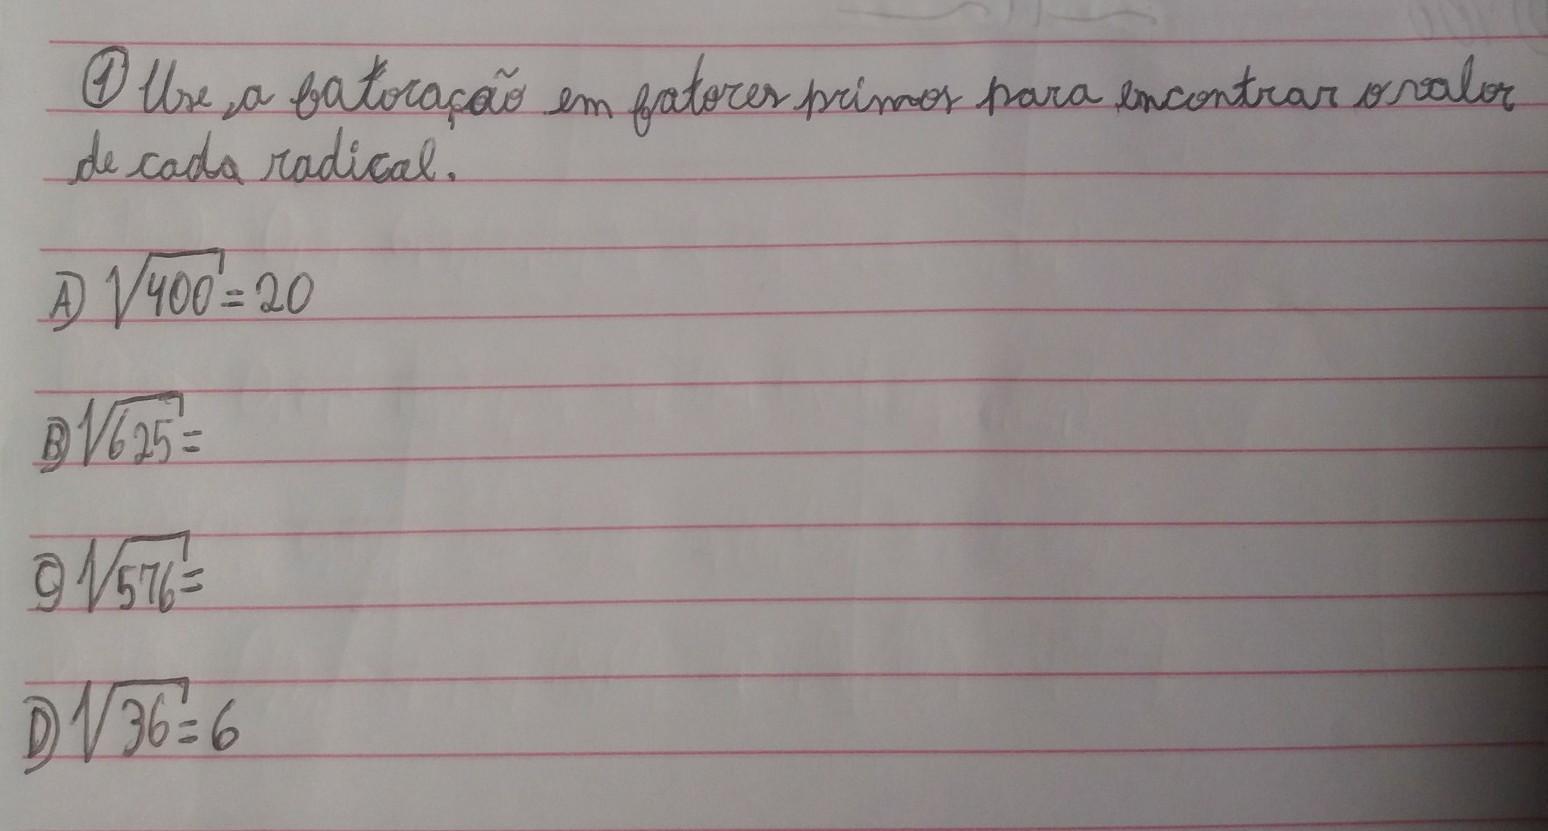 ① Use, a fatoração em fatores primos para encontrar o valor
de cada radical.
A) √400 = 20
B) √625 =
C) √576 =
D) √36 = 6